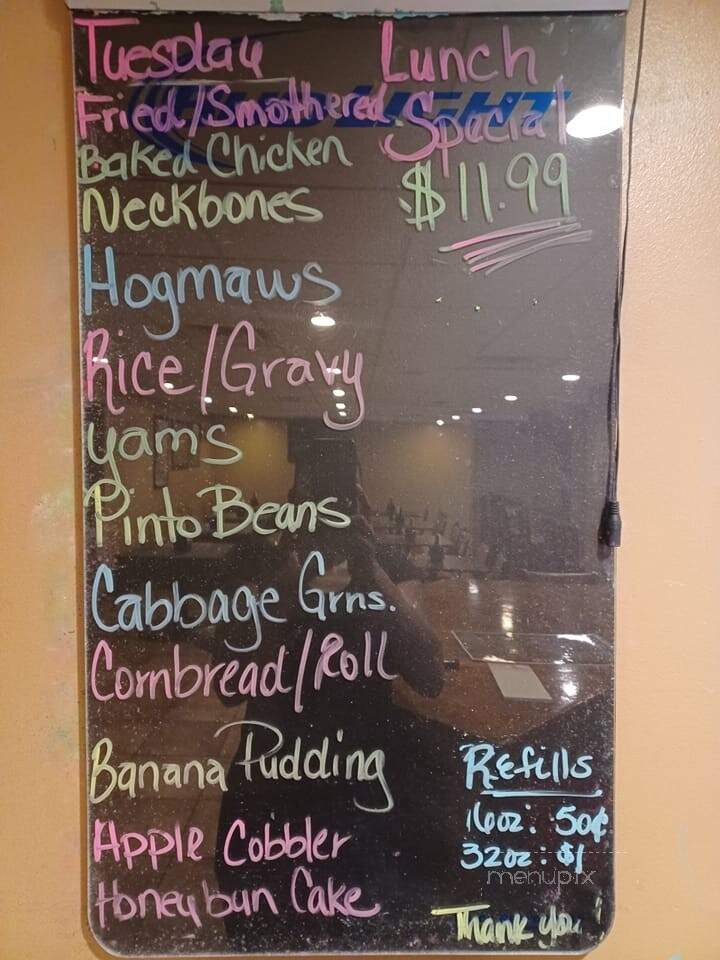 Tuesday Lunch
Fried/Smothered Special
Baked Chicken $11.99
Neckbones
Hogmaws
Rice/Gravy
yams
Pinto Beans
Cabbage Grns.
Cornbread/Roll
Banana Pudding
Apple Cobbler
Honeybun Cake
Refills
16oz: 50¢
32oz: $1
menupix
Thank you!